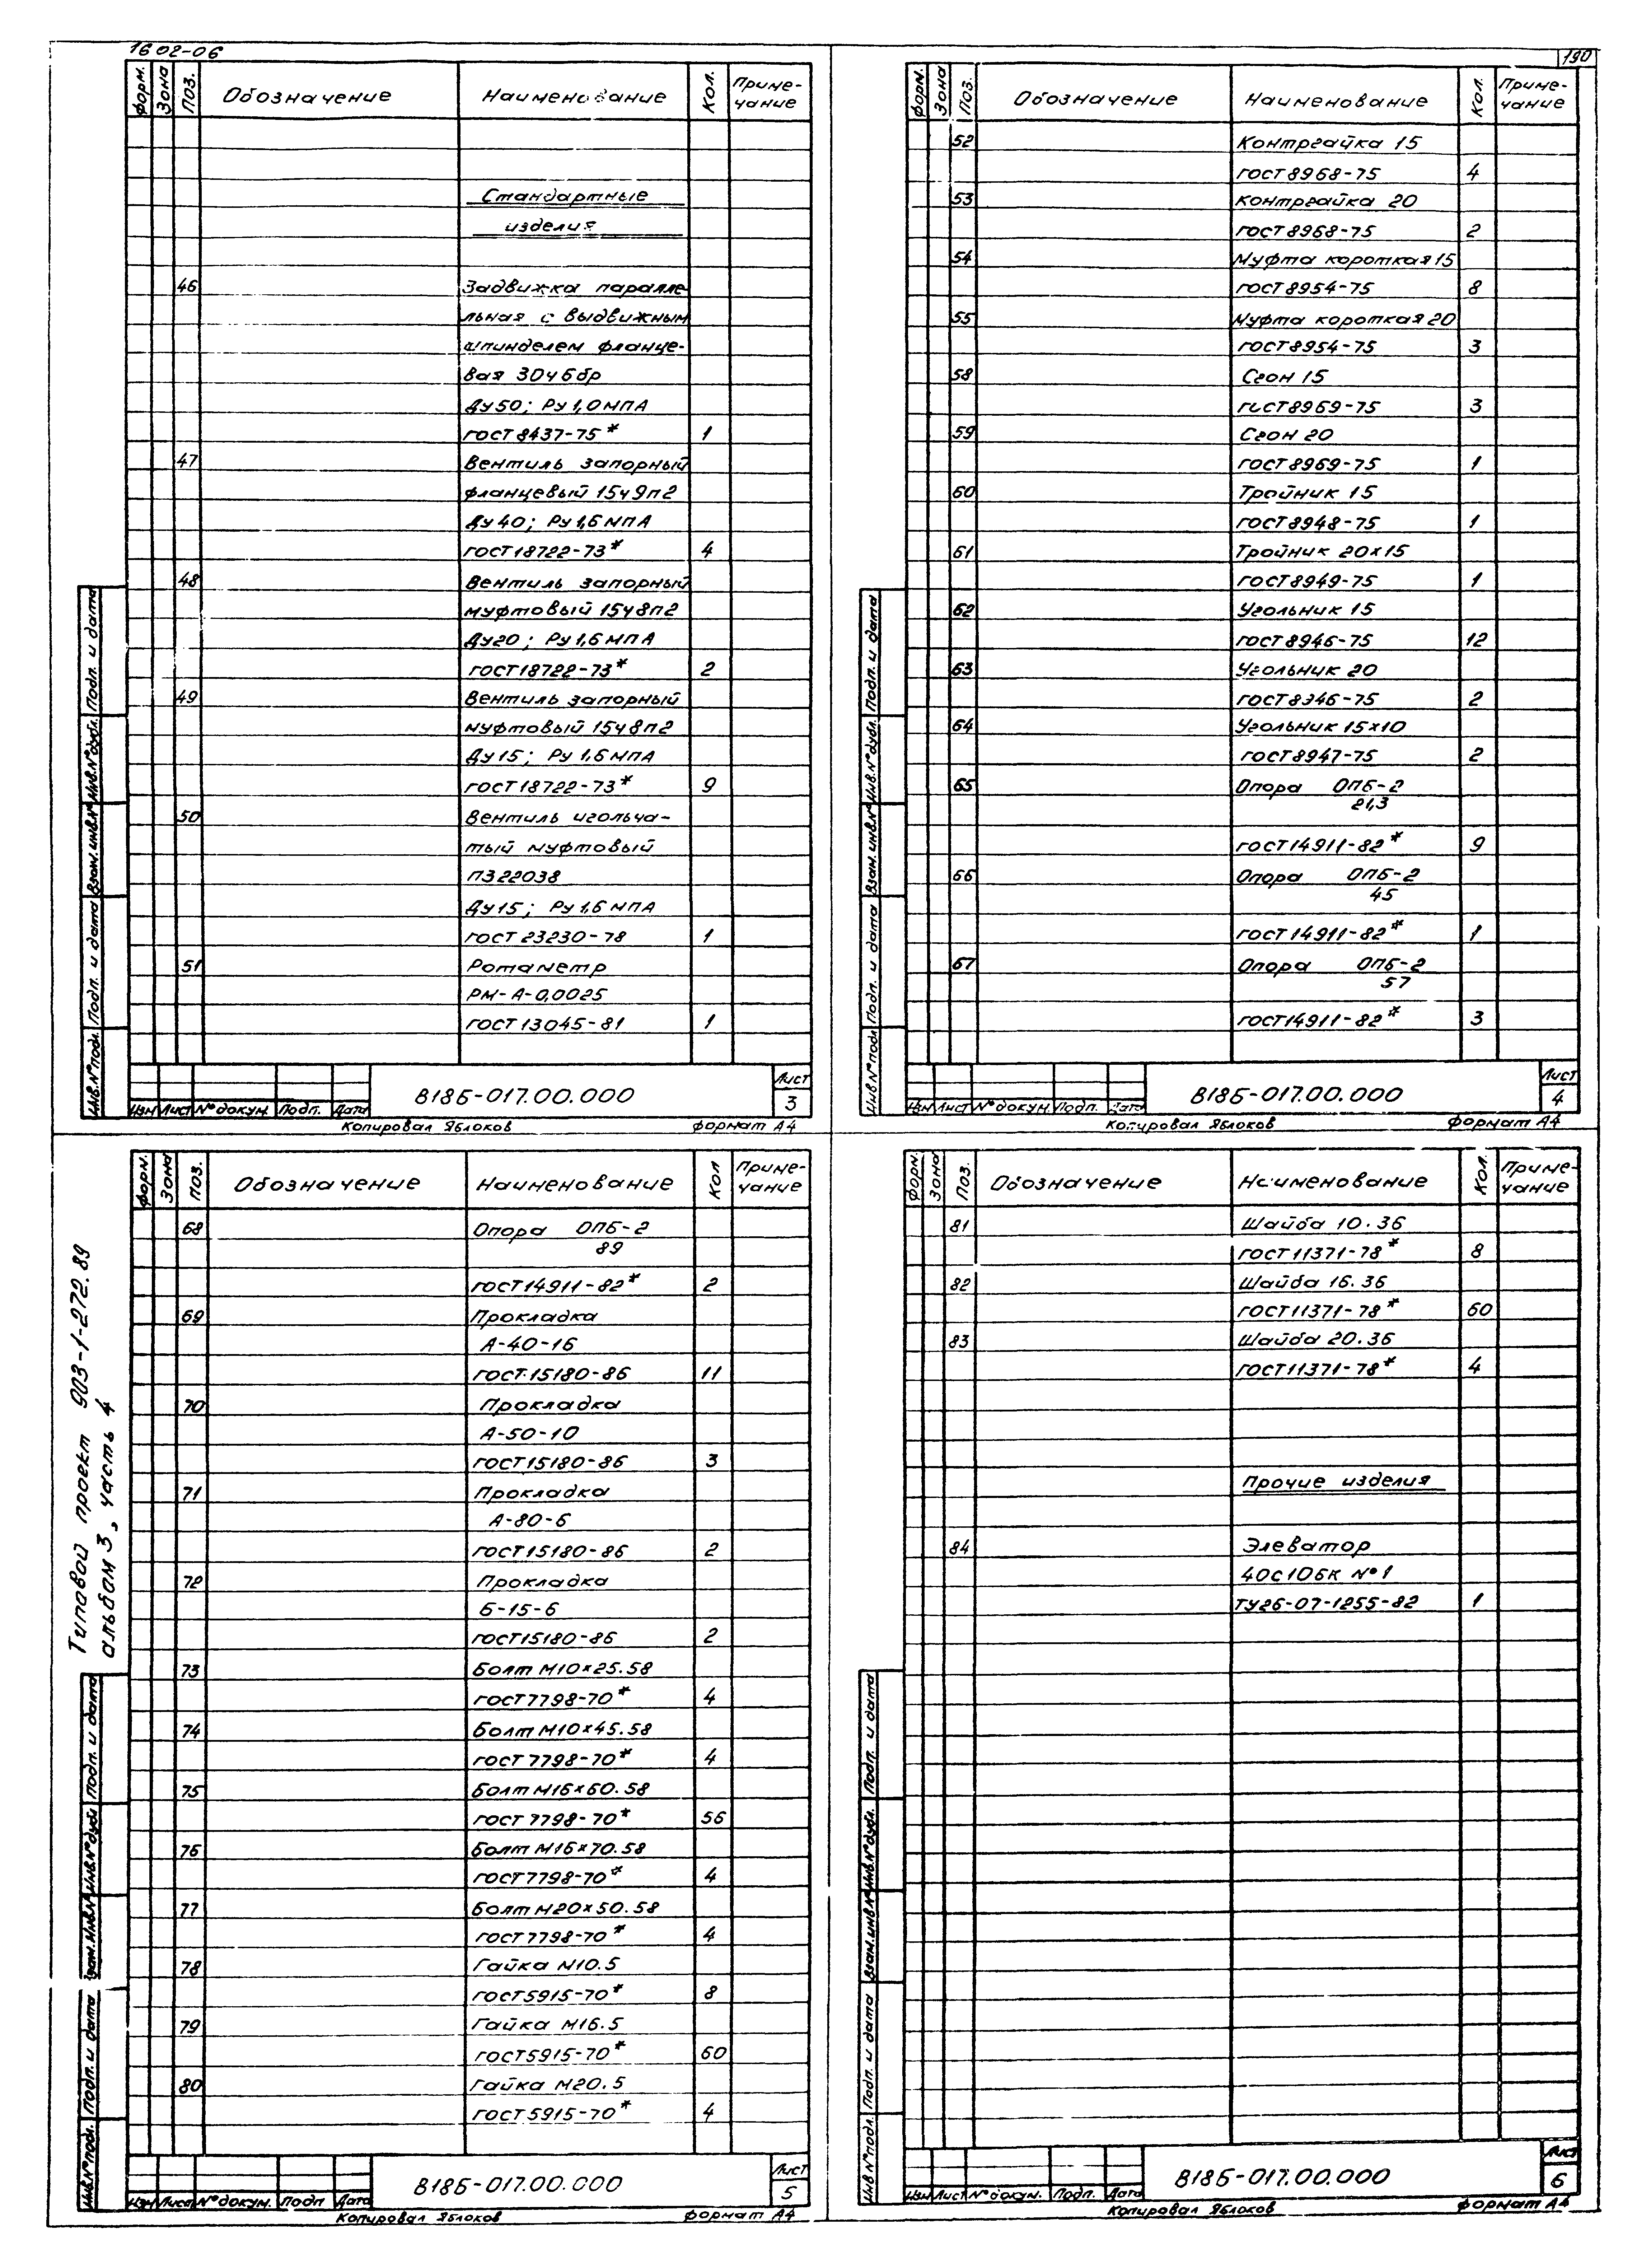 1602-06
190
Форм. Зона Поз. Обозначение Наименование Кол. Приме-
чание
Стандартные
изделия
46 Задвижка паралле
льная с выдвижным
шпинделем фланце-
вая 30ч6бр
Ду50; Ру1,0 МПА
ГОСТ 8437-75* 1
47 Вентиль запорный
фланцевый 15ч9п2
Ду40; Ру1,6 МПА
ГОСТ 18722-73* 4
48 Вентиль запорный
муфтовый 15ч8п2
Ду20; Ру1,6 МПА
ГОСТ 18722-73* 2
49 Вентиль запорный
муфтовый 15ч8п2
Ду15; Ру1,6 МПА
ГОСТ 18722-73* 9
50 Вентиль игольча-
тый муфтовый
ПЗ22038
Ду15; Ру1,6 МПА
ГОСТ 23230-78 1
51 Ротаметр
РМ-А-0,0025
ГОСТ 13045-81 1
Инв.№подл. Подп. и дата Взам.инв.№ Инв.№дубл. Подп. и дата
Изм Лист №докум. Подп. Дата
В18Б-017.00.000
Лист
3
Копировал Яблоков Формат А4
Форм. Зона Поз. Обозначение Наименование Кол. Приме-
чание
52 Контргайка 15
ГОСТ 8968-75 4
53 Контргайка 20
ГОСТ 8968-75 2
54 Муфта короткая 15
ГОСТ 8954-75 8
55 Муфта короткая 20
ГОСТ 8954-75 3
58 Сгон 15
ГОСТ 8969-75 3
59 Сгон 20
ГОСТ 8969-75 1
60 Тройник 15
ГОСТ 8948-75 1
61 Тройник 20х15
ГОСТ 8949-75 1
62 Угольник 15
ГОСТ 8946-75 12
63 Угольник 20
ГОСТ 8946-75 2
64 Угольник 15х10
ГОСТ 8947-75 2
65 Опора ОПБ-2
21,3
ГОСТ 14911-82* 9
66 Опора ОПБ-2
45
ГОСТ 14911-82* 1
67 Опора ОПБ-2
57
ГОСТ 14911-82* 3
Инв.№подл. Подп. и дата Взам.инв.№ Инв.№дубл. Подп. и дата
Изм Лист №докум. Подп. Дата
В18Б-017.00.000
Лист
4
Копировал Яблоков Формат А4
Типовой проект 903-1-272.89
альбом 3, часть 4
Форм. Зона Поз. Обозначение Наименование Кол Приме-
чание
68 Опора ОПБ-2
89
ГОСТ 14911-82* 2
69 Прокладка
А-40-16
ГОСТ 15180-86 11
70 Прокладка
А-50-10
ГОСТ 15180-86 3
71 Прокладка
А-80-6
ГОСТ 15180-86 2
72 Прокладка
Б-15-6
ГОСТ 15180-86 2
73 Болт М10х25.58
ГОСТ 7798-70* 4
74 Болт М10х45.58
ГОСТ 7798-70* 4
75 Болт М16х60.58
ГОСТ 7798-70* 56
76 Болт М16х70.58
ГОСТ 7798-70* 4
77 Болт М20х50.58
ГОСТ 7798-70* 4
78 Гайка М10.5
ГОСТ 5915-70* 8
79 Гайка М16.5
ГОСТ 5915-70* 60
80 Гайка М20.5
ГОСТ 5915-70* 4
Инв.№подл. Подп. и дата Взам.инв.№ Инв.№дубл Подп. и дата
Изм Лист №докум. Подп Дата
В18Б-017.00.000
Лист
5
Копировал Яблоков Формат А4
Форм. Зона Поз. Обозначение Наименование Кол. Приме-
чание
81 Шайба 10.36
ГОСТ 11371-78* 8
82 Шайба 16.36
ГОСТ 11371-78* 60
83 Шайба 20.36
ГОСТ 11371-78* 4
Прочие изделия
84 Элеватор
40с10бк №1
ТУ26-07-1255-82 1
Инв.№подл. Подп. и дата Взам.инв.№ Инв.№дубл. Подп. и дата
Изм Лист №докум. Подп. Дата
В18Б-017.00.000
Лист
6
Копировал Яблоков Формат А4